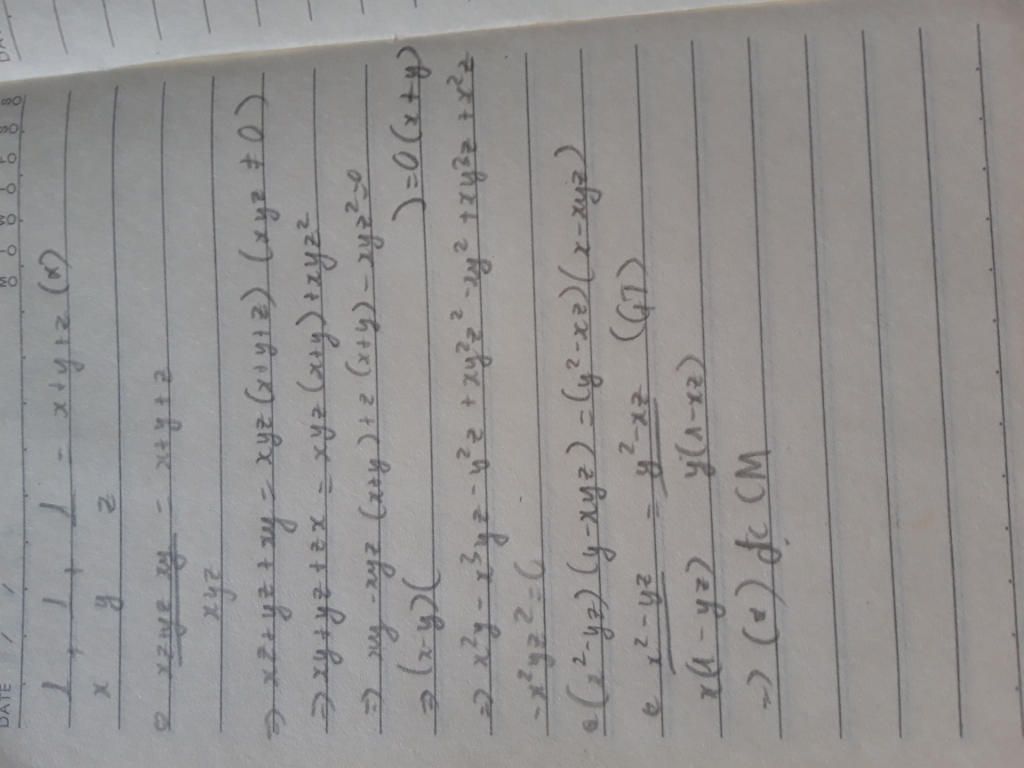 DATE / /
1/x + 1/y + 1/z - x+y+z (*)
xz+yz xy/xyz - x+y+z
⇒ xz+yz+xy = xyz(x+y+z) (xyz ≠ 0)
⇒ xy+yz+zx = xyz(x+y)+xyz²
⇒ xy - xyz(x+y)+z(x+y) - xyz² = 0
⇒ (x-y)( )=0(x+y)
⇒ x²y - x³yz - y²z + xy²z² - xy² + xy³z + x²z
- x²yz² = (
(x²-yz)(y-xyz) = (y²-xz)(x-xyz)
x²-yz/x(1-yz) = y²-xz/y(1-xz)